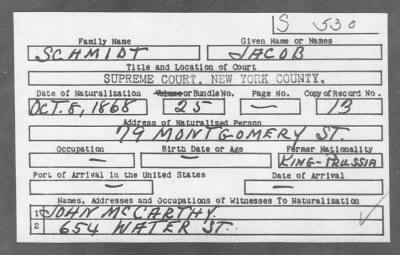 S 530
Family Name Given Name or Names
SCHMIDT JACOB
Title and Location of Court
SUPREME COURT, NEW YORK COUNTY.
Date of Naturalization Volume or Bundle No. Page No. Copy of Record No.
OCT. 8, 1868 25 — 13
Address of Naturalized Person
79 MONTGOMERY ST.
Occupation Birth Date or Age Former Nationality
— — KING-PRUSSIA
Port of Arrival in the United States Date of Arrival
— —
Names, Addresses and Occupations of Witnesses To Naturalization
1 JOHN MCCARTHY.
2 654 WATER ST.